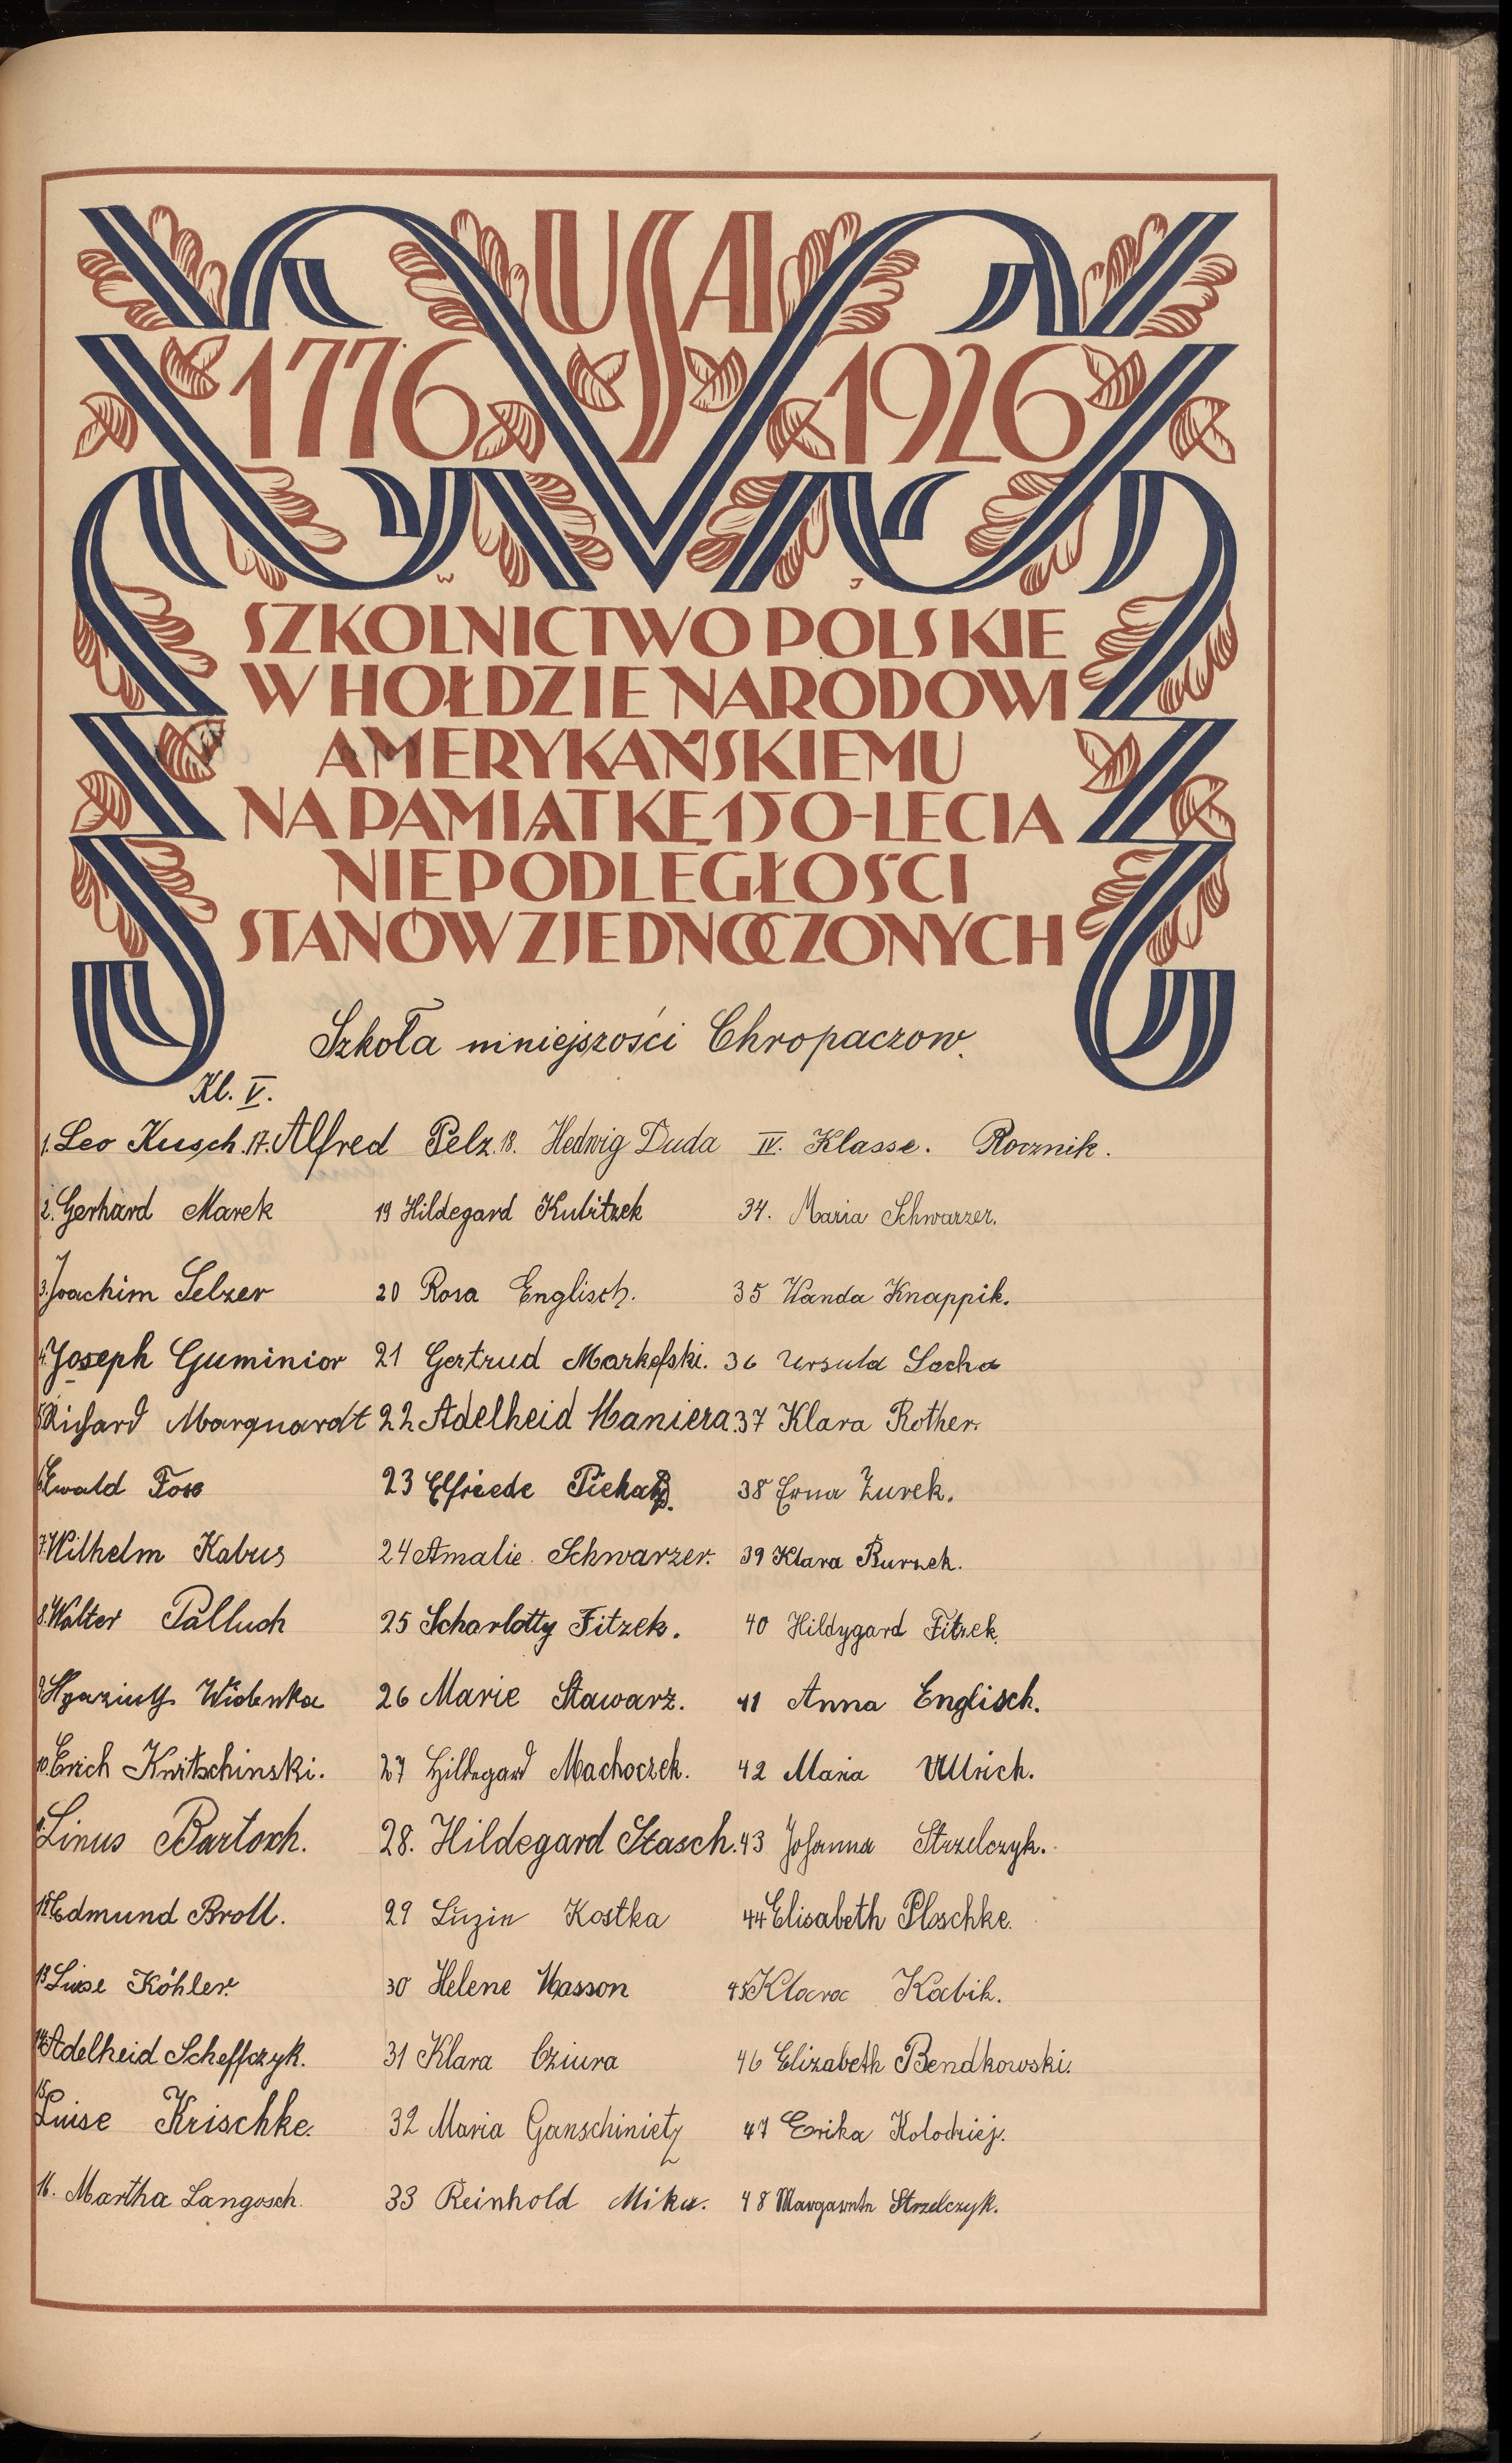 USA
1776 1926
W J
SZKOLNICTWO POLSKIE
W HOŁDZIE NARODOWI
AMERYKAŃSKIEMU
NA PAMIĄTKĘ 150-LECIA
NIEPODLEGŁOŚCI
STANÓW ZJEDNOCZONYCH
Szkoła mniejszości Chropaczow.
Kl. V.
1. Leo Kusch. 17. Alfred Pelz. 18. Hedwig Duda IV. Klasse. Rocznik.
2. Gerhard Marek 19 Hildegard Kubitzek 34. Maria Schwarzer.
3. Joachim Selzer 20 Rosa Englisch. 35 Wanda Knappik.
4. Joseph Guminior 21 Gertrud Markefski. 36 Ursula Socha
5. Richard Marquardt 22 Adelheid Maniera. 37 Klara Rother.
6. Ewald 23 Elfriede 38 Erna Zurek.
7. Wilhelm Kabus 24 Amalie Schwarzer. 39 Klara Burzek.
8. Walter Palluch 25 Scharlotty Fitzek. 40 Hildygard Fitzek.
9. Hyazinth Widenka 26 Marie Stawarz. 41 Anna Englisch.
10. Erich 27 Hildegard Machoczek. 42 Maria Ullrich.
11. Linus Bartosch. 28. Hildegard Stasch. 43 Johanna Strzelczyk.
12. Edmund Broll. 29 Luzie Kostka 44 Elisabeth Ploschke.
13. Luise Köhler. 30 Helene Wasson 45 Klara Kabik.
14. Adelheid Scheffczyk. 31 Klara Cziura 46 Elizabeth Bendkowski.
15. Luise Krischke. 32 Maria Ganschinietz 47 Erika Kolodziej.
16. Martha Langosch. 33 Reinhold Mika. 48 Margarete Strzelczyk.